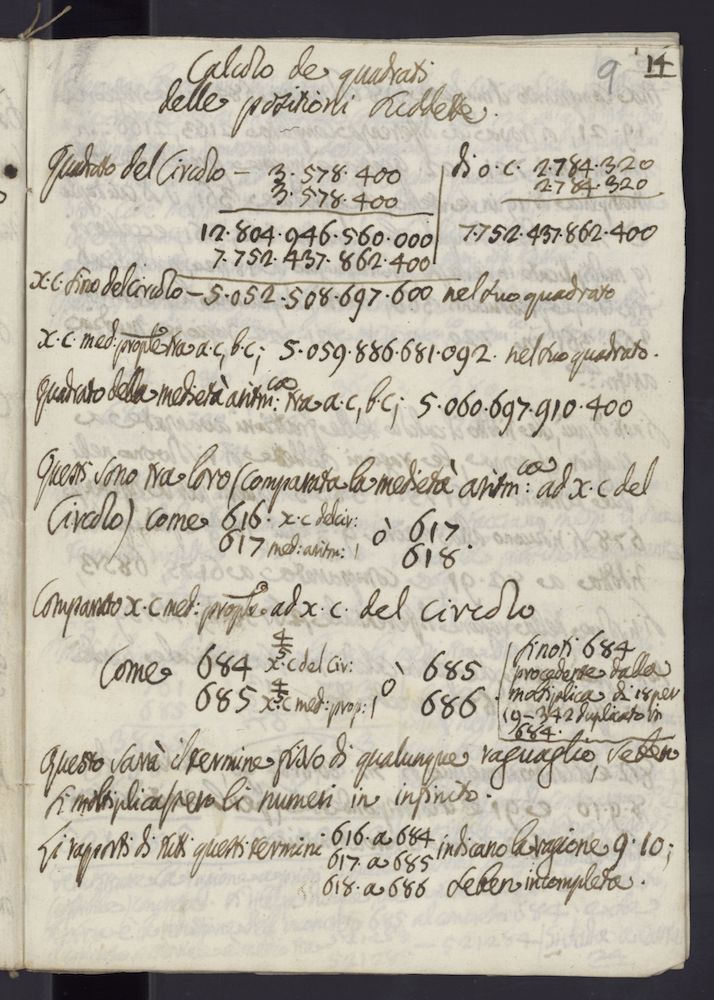 9 14
Calcolo de quadrati
delle positioni suddette.
Quadrato del Circolo – 3·578·400
3·578·400
12·804·946·560·000
7·752·437·862·400
di o·c· 2·784·320
2·784·320
7·752·437·862·400
x·c· sino del circolo – 5·052·508·697·600 nel suo quadrato
x·c· med: prop.le tra a·c, b·c; 5·059·886·681·092· nel suo quadrato·
Quadrato della medietà aritm:ca tra a·c, b·c; 5·060·697·910·400
Questi sono tra loro (comparata la medietà aritm:ca ad x·c del
Circolo) come 616· x·c del cir: ò 617
617 med: aritm: 618·
Comparato x·c med: prop.le ad x·c· del circolo
Come 684 4/5 x·c del Cir: ò 685
685 4/5 x·c med: prop: 686·
si noti 684
procedente dalla
moltiplica di 18 per
19–342 duplicato in
684·
Questo sarà il termine fisso di qualunque raguaglio, se ben
si moltiplicassero li numeri in infinito·
Li rapporti di tutti questi termini 616·a 684 indicano la ragione 9·10;
617·a 685
618·a 686 se ben incompleta·